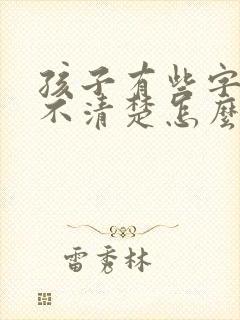 孩子有些字
不清楚怎麼
雷秀林